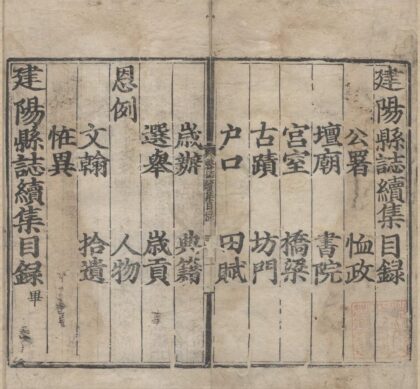 建陽縣誌續集目錄
公署 恤政
壇廟 書院
宮室 橋梁
古蹟 坊門
户口 田賦
歲辦 典籍
選舉 歲貢
恩例 人物
文翰 拾遺
恠異
建陽縣誌續集目錄 畢